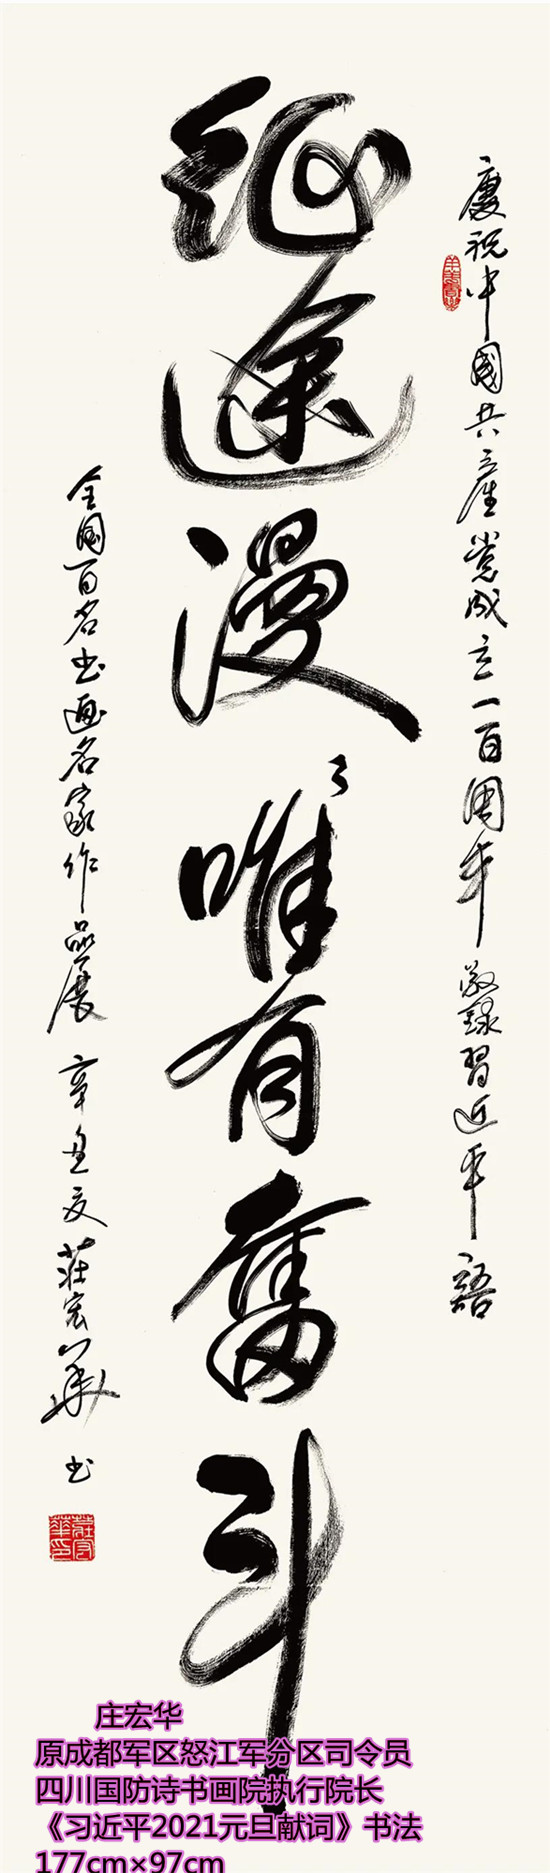 慶祝中國共產党成立一百周年敬錄習近平語
征途漫々唯有奮斗
全國百名书画名家作品展 辛丑夏 莊宏華 书
庄宏华
原成都军区怒江军分区司令员
四川国防诗书画院执行院长
《习近平2021元旦献词》书法
177cm×97cm